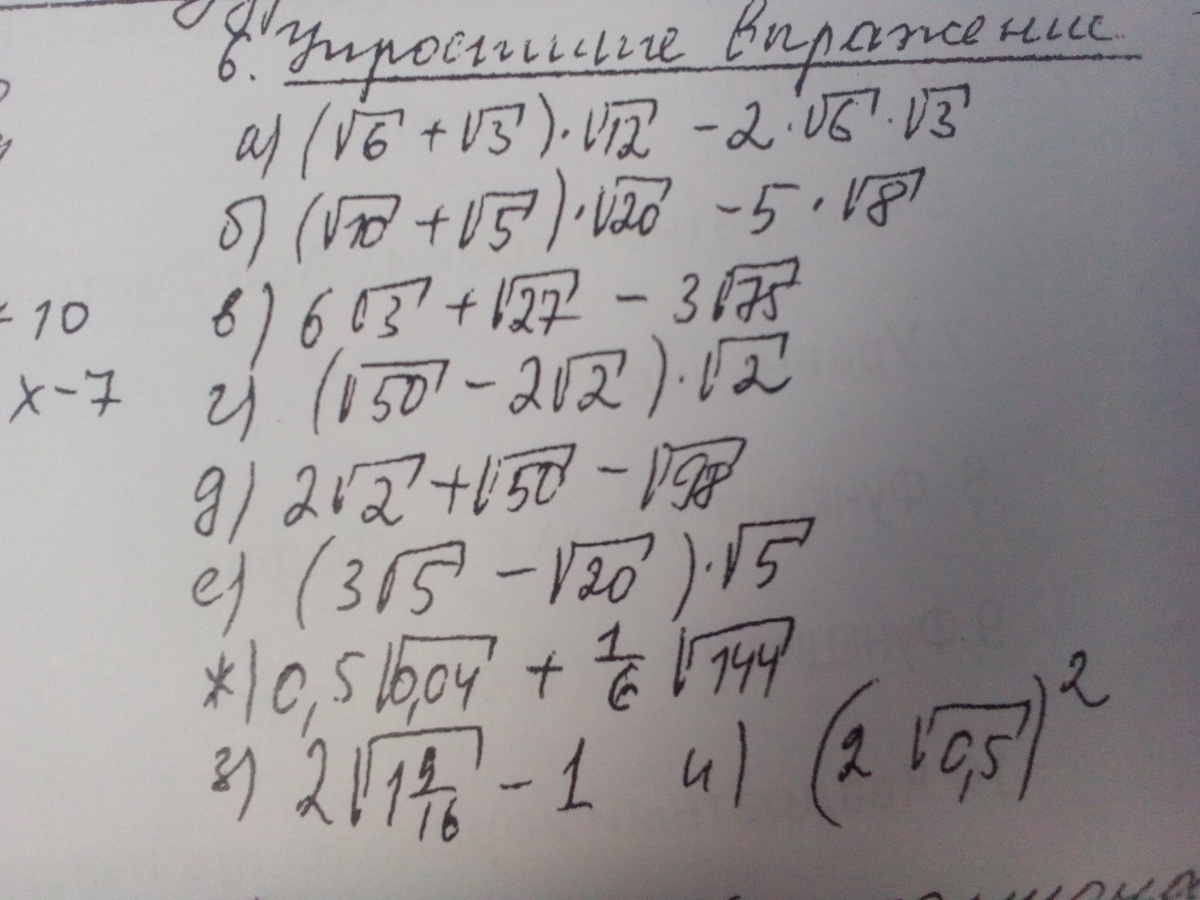 6. Упростите выражение
а) (√6 + √3)·√12 - 2·√6·√3
б) (√10 + √5)·√20 - 5·√8
- 10 в) 6√3 + √27 - 3√75
x-7 г) (√50 - 2√2)·√2
д) 2√2 + √50 - √98
е) (3√5 - √20)·√5
ж) 0,5√0,04 + 1/6 √144
з) 2√1 9/16 - 1 и) (2√0,5)²